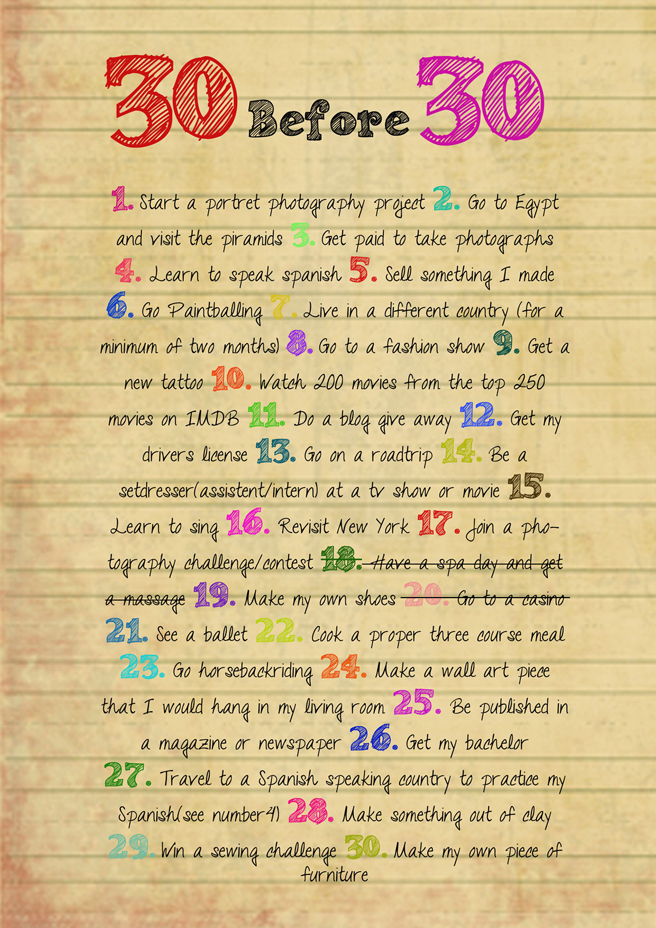 30 Before 30
1. Start a portret photography project 2. Go to Egypt
and visit the piramids 3. Get paid to take photographs
4. Learn to speak spanish 5. Sell something I made
6. Go Paintballing 7. Live in a different country (for a
minimum of two months) 8. Go to a fashion show 9. Get a
new tattoo 10. Watch 200 movies from the top 250
movies on IMDB 11. Do a blog give away 12. Get my
drivers license 13. Go on a roadtrip 14. Be a
setdresser(assistent/intern) at a tv show or movie 15.
Learn to sing 16. Revisit New York 17. Join a pho-
tography challenge/contest 18. Have a spa day and get
a massage 19. Make my own shoes 20. Go to a casino
21. See a ballet 22. Cook a proper three course meal
23. Go horsebackriding 24. Make a wall art piece
that I would hang in my living room 25. Be published in
a magazine or newspaper 26. Get my bachelor
27. Travel to a Spanish speaking country to practice my
Spanish(see number4) 28. Make something out of clay
29. Win a sewing challenge 30. Make my own piece of
furniture